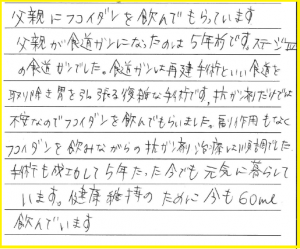 父親にフコイダンを飲んでもらっています
父親が食道ガンになったのは5年前です。ステージⅢ
の食道ガンでした。食道ガンは再建手術といい食道を
取り除き胃を引張る複雑な手術です。抗ガン剤だけでは
不安なのでフコイダンを飲んでもらいました。副作用もなく
フコイダンを飲みながらの抗ガン剤治療は順調でした
手術も成功して5年たった今でも元気に暮らして
います。健康維持のために今も60ml
飲んでいます